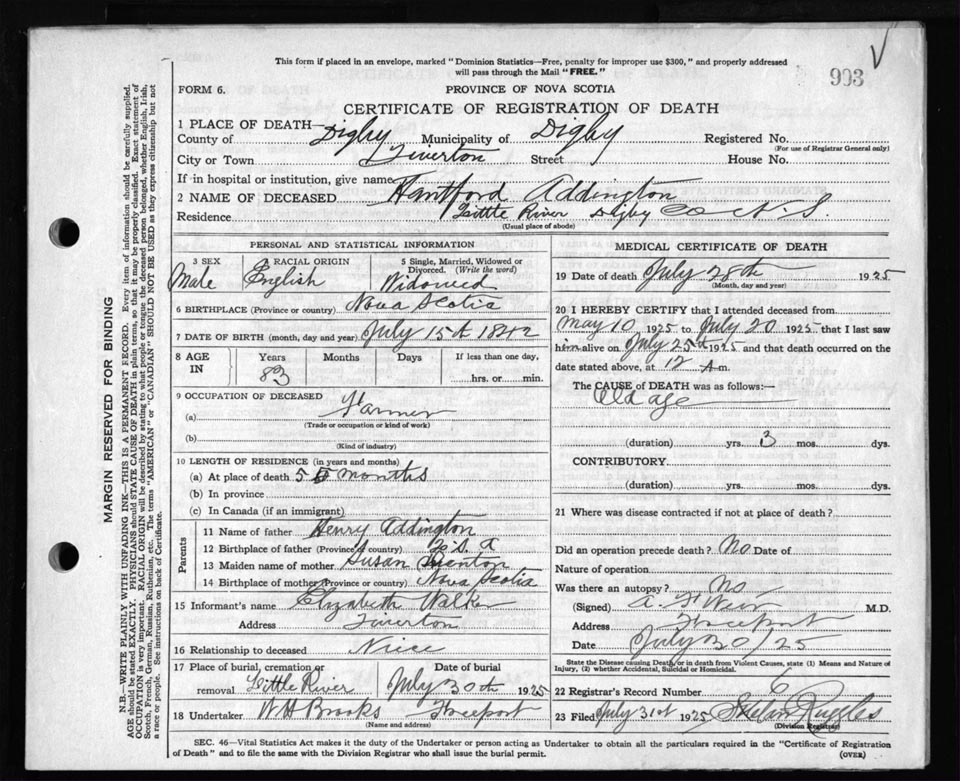 This form if placed in an envelope, marked "Dominion Statistics—Free, penalty for improper use $300," and properly addressed
will pass through the Mail "FREE."
993
FORM 6.
PROVINCE OF NOVA SCOTIA
CERTIFICATE OF REGISTRATION OF DEATH
1 PLACE OF DEATH—
County of Digby Municipality of Digby Registered No.
(For use of Registrar General only)
City or Town Tiverton Street House No.
If in hospital or institution, give name
2 NAME OF DECEASED Hantford Addington
Residence Little River Digby Co N.S
(Usual place of abode)
PERSONAL AND STATISTICAL INFORMATION
3 SEX Male
4 RACIAL ORIGIN English
5 Single, Married, Widowed or Divorced. (Write the word) Widowed
6 BIRTHPLACE (Province or country) Nova Scotia
7 DATE OF BIRTH (month, day and year) July 15th 1842
8 AGE IN Years 83 Months Days If less than one day, hrs. or min.
9 OCCUPATION OF DECEASED
(a) Farmer
(Trade or occupation or kind of work)
(b)
(Kind of industry)
10 LENGTH OF RESIDENCE (in years and months)
(a) At place of death 5 months
(b) In province
(c) In Canada (if an immigrant)
Parents
11 Name of father Henry Addington
12 Birthplace of father (Province or country)
13 Maiden name of mother Susan Denton
14 Birthplace of mother (Province or country) Nova Scotia
15 Informant's name Elizabeth Walker
Address Tiverton
16 Relationship to deceased Niece
17 Place of burial, cremation or removal Little River Date of burial July 30th 1925
18 Undertaker W H Brooks Freeport
(Name and address)
MEDICAL CERTIFICATE OF DEATH
19 Date of death July 28th 1925
(Month, day and year)
20 I HEREBY CERTIFY that I attended deceased from
May 10 1925 to July 20 1925 that I last saw
him alive on July 25th 1925 and that death occurred on the
date stated above, at 12 A m.
The CAUSE of DEATH was as follows:—
Old age
(duration) yrs. 3 mos. dys.
CONTRIBUTORY
(duration) yrs. mos. dys.
21 Where was disease contracted if not at place of death?
Did an operation precede death? No Date of
Nature of operation
Was there an autopsy? No
(Signed) A. F. Weir M.D.
Address Freeport
Date July 30/25
State the Disease causing Death, or in death from Violent Causes, state (1) Means and Nature of
Injury, (2) whether Accidental, Suicidal or Homicidal.
22 Registrar's Record Number 6
23 Filed July 31st 1925 Ruggles
(Division Registrar)
SEC. 46—Vital Statistics Act makes it the duty of the Undertaker or person acting as Undertaker to obtain all the particulars required in the "Certificate of Registration
of Death" and to file the same with the Division Registrar who shall issue the burial permit.
(OVER)
MARGIN RESERVED FOR BINDING
N.B.—WRITE PLAINLY WITH UNFADING INK—THIS IS A PERMANENT RECORD. Every item of information should be carefully supplied.
AGE should be stated EXACTLY. PHYSICIANS should STATE CAUSE OF DEATH in plain terms, so that it may be properly classified. Exact statement of
OCCUPATION is very important. RACIAL ORIGIN will be described by stating to what people or tongue the deceased person belonged, whether English, Irish,
Scotch, French, German, Russian, Ruthenian, etc. The terms "AMERICAN" or "CANADIAN" SHOULD NOT BE USED as they express citizenship but not
a race or people. See instructions on back of Certificate.